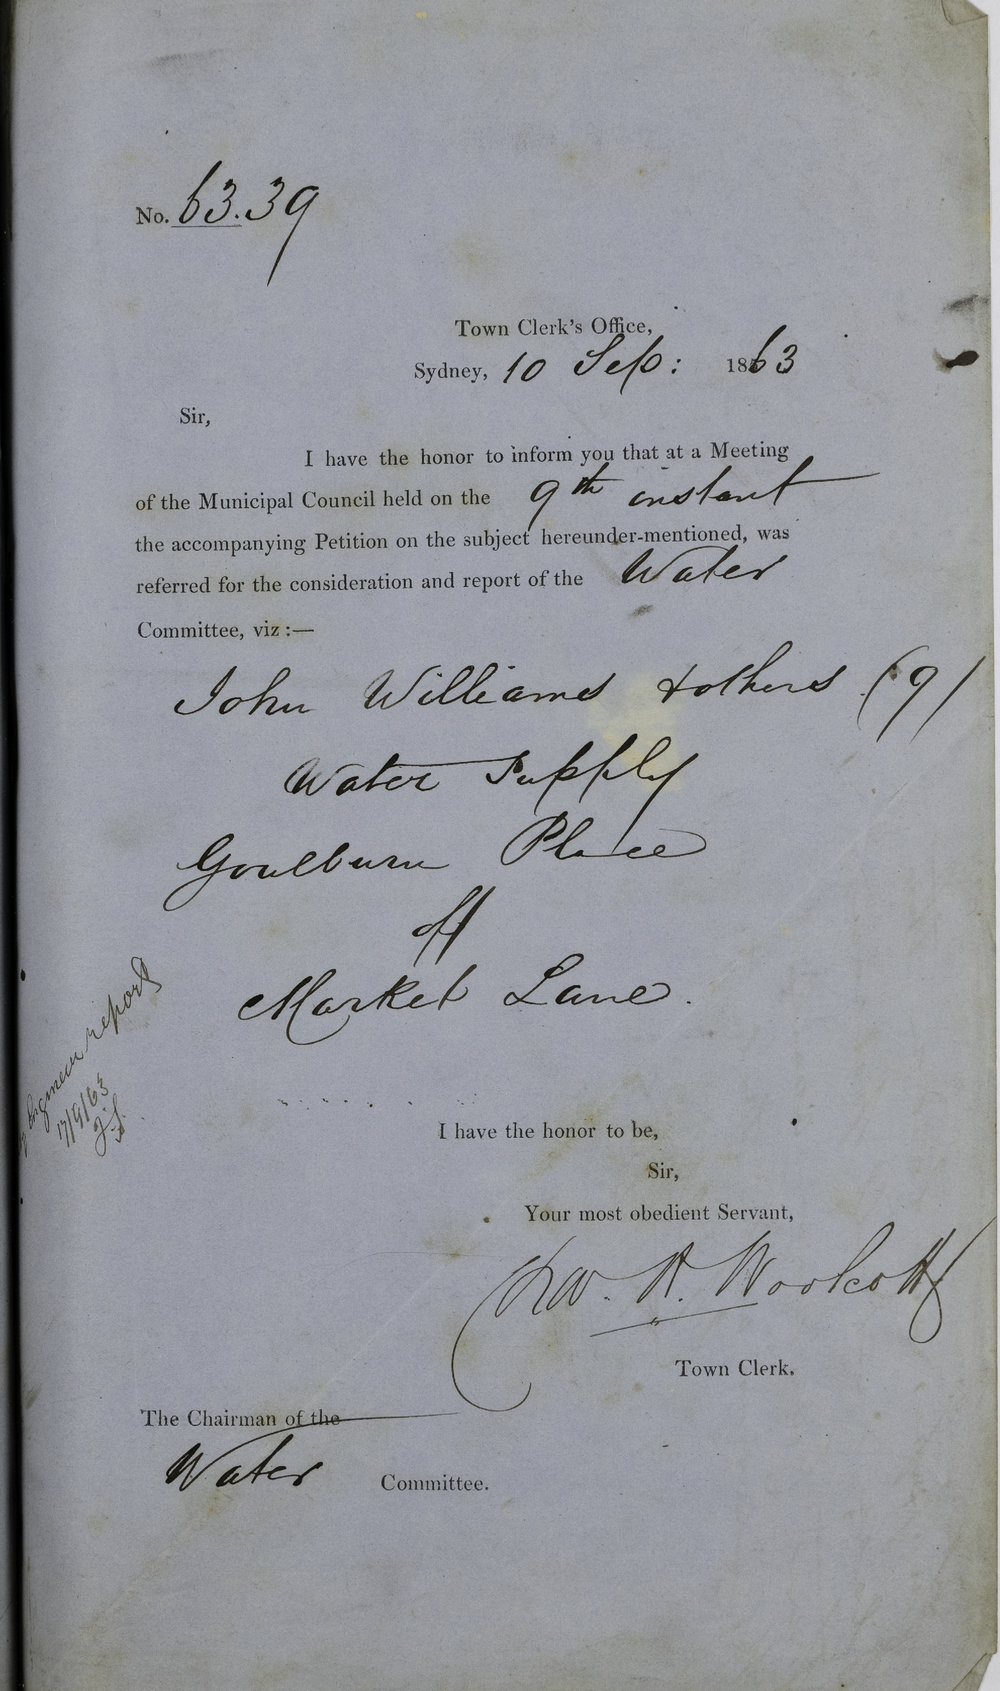 No. 63.39
Town Clerk's Office,
Sydney, 10 Sep: 1863
Sir,
I have the honor to inform you that at a Meeting
of the Municipal Council held on the 9th instant
the accompanying Petition on the subject hereunder-mentioned, was
referred for the consideration and report of the Water
Committee, viz :—
John Williams & others (9)
Water Supply
Goulburn Place
off
Market Lane.
Engineer report
17/9/63
I have the honor to be,
Sir,
Your most obedient Servant,
Woolcott
Town Clerk.
The Chairman of the
Water Committee.